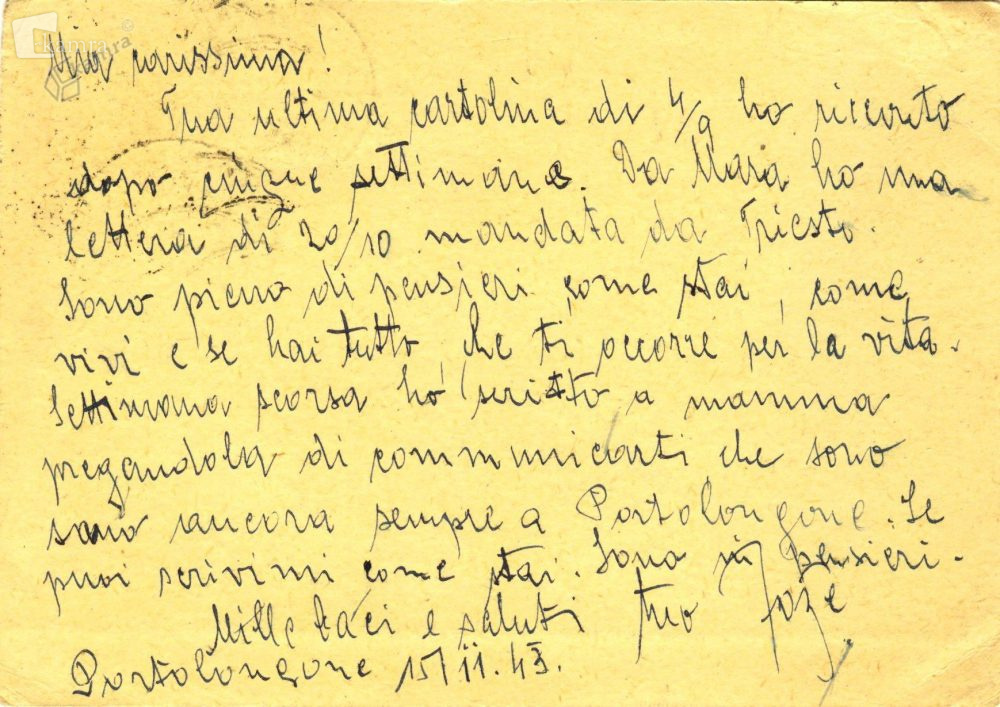 Mia carissima!
Tua ultima cartolina di 4/9 ho riccevto
dopo cinque settimane. Da Mara ho una
lettera di 20/10 mandata da Trieste.
Sono pieno di pensieri, come stai, come
vivi e se hai tutto, che ti occorre per la vita.
Settimana scorsa ho scritto a mamma
pregandola di communicarti che sono
sano ancora sempre a Portolongone. Se
puoi scrivimi come stai. Sono in pensieri.
Mille baci e saluti tuo Joze
Portolongone 15/11.43.